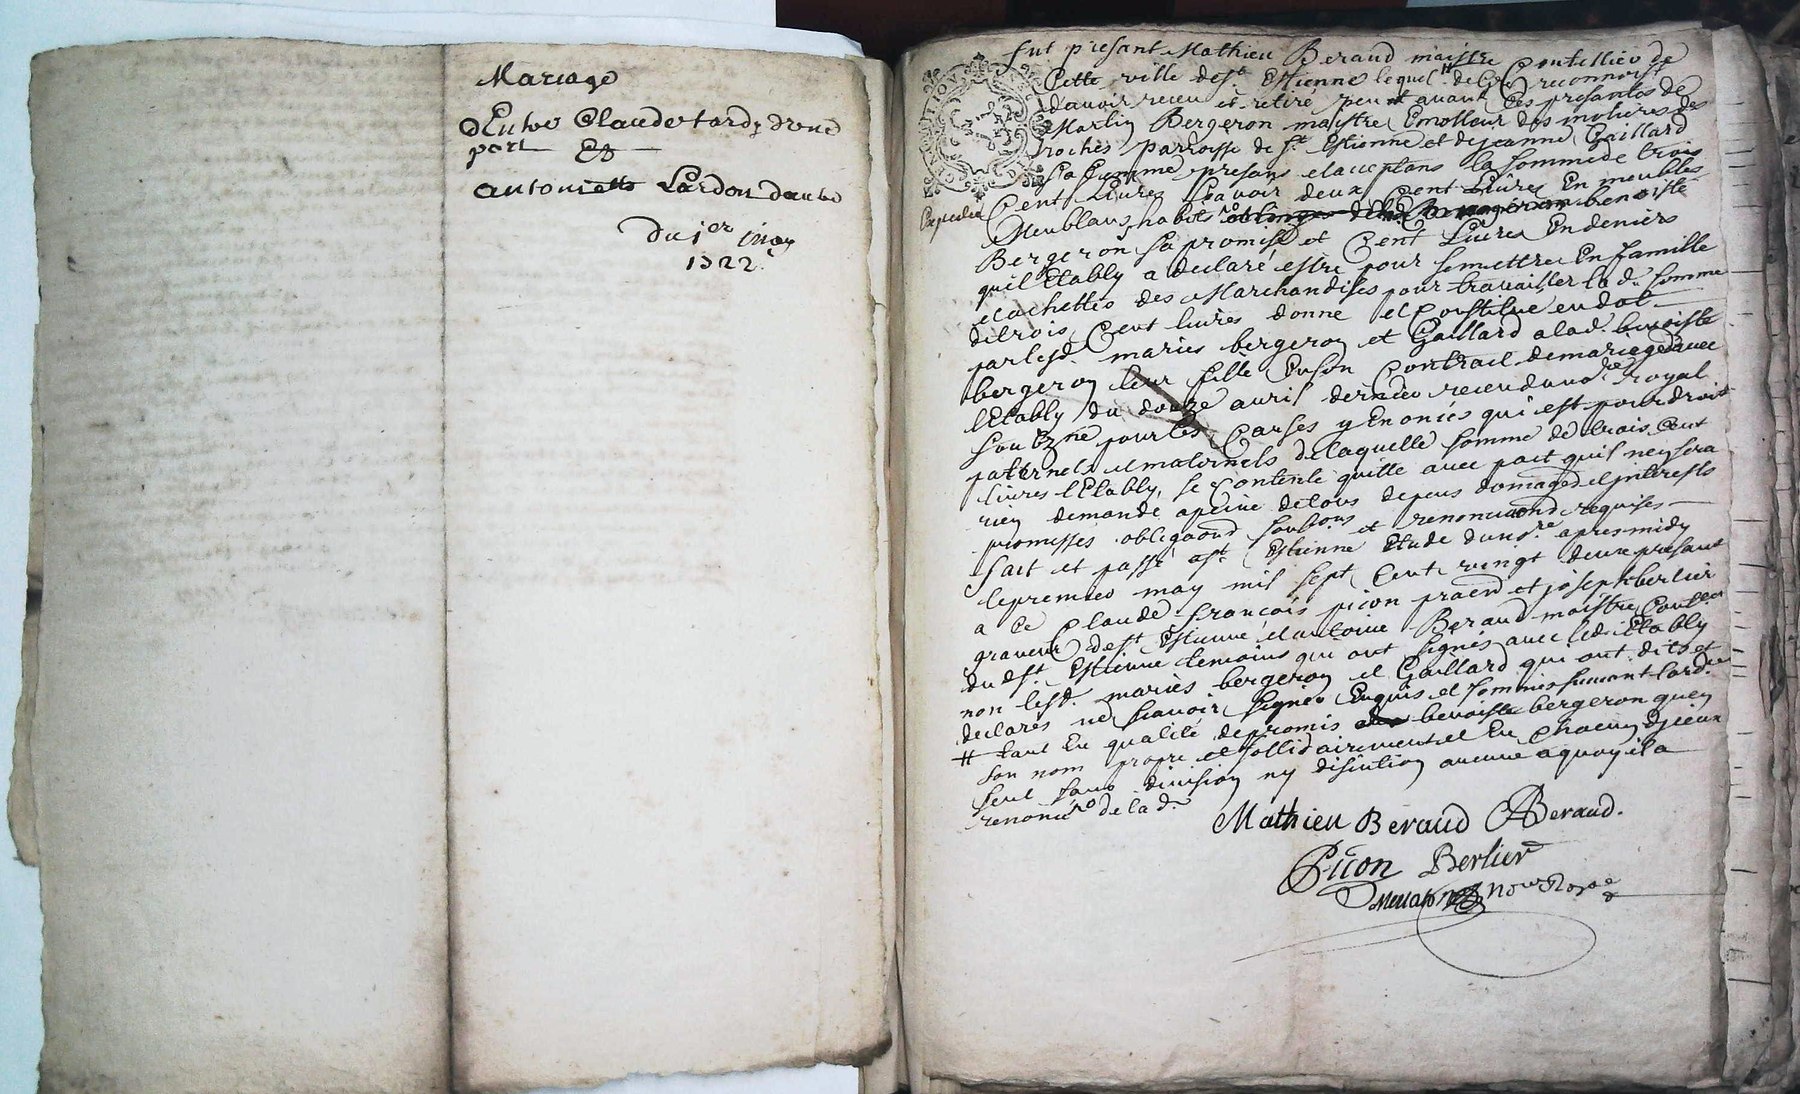 Mariage
d'Entre Claude tardy d'une
part Et
antoinette Lardon dautre
Du 1er may
1722
fut présant Mathieu Beraud maistre Coutellier de
Cette ville de st Estienne lequel # de Gré reconnoist
davoir receu et retiré peu avant Ces presantes de
Martin Bergeron maistre Emolleur des molieres des
roches parroisse de st Estienne et de jeanne Gaillard
sa femme presans et acceptans la somme de trois
Expedié
Cent Livres scavoir deux Cent Livres En meubles
Meublans habits benoiste
Bergeron sa promise et Cent Livres En deniers
quil Etably a declaré estre pour semettre En famille
et achetter des Marchandises pour travailler la d. somme
de trois Cent livres donné et Constitué en dot
par lesd. mariés bergeron et Gaillard a lad. benoiste
bergeron leur fille En son Contrail de mariage avec
l'Etably du douze avril dernier receu du nore royal
soubzné pour les Causes y Enoncés qui est pour droit
paternels et maternels de laquelle somme de trois Cent
livres l'Etably, se Contente quitte avec pact quil ney sera
rien demandé a peine de tous depens domages et jnterests
promesses obligaons sousons et renonciaons requises
fait et passé a st Estienne Etude dunore apres midy
le premier may mil sept Cent vingt deux presant
a Ce Claude françois picon pratn et joseph berlier
graveur de st Estienne et antoine Beraud maistre Coutler
du d st Estienne temoins qui ont signés avec led. Etably
non lesd. mariés bergeron et Gaillard qui ont dits et
declarés ne scavoir signer Enquis et sommés suivant lordce
# tant En qualité de promis benoiste bergeron quen
son nom propre et sollidairement et En chacun djceux
seul sans division ny discution aucune a quoy il a
renoncé ro de la d.
Mathieu Beraud ABeraud.
Picon Berlier
nore Royal